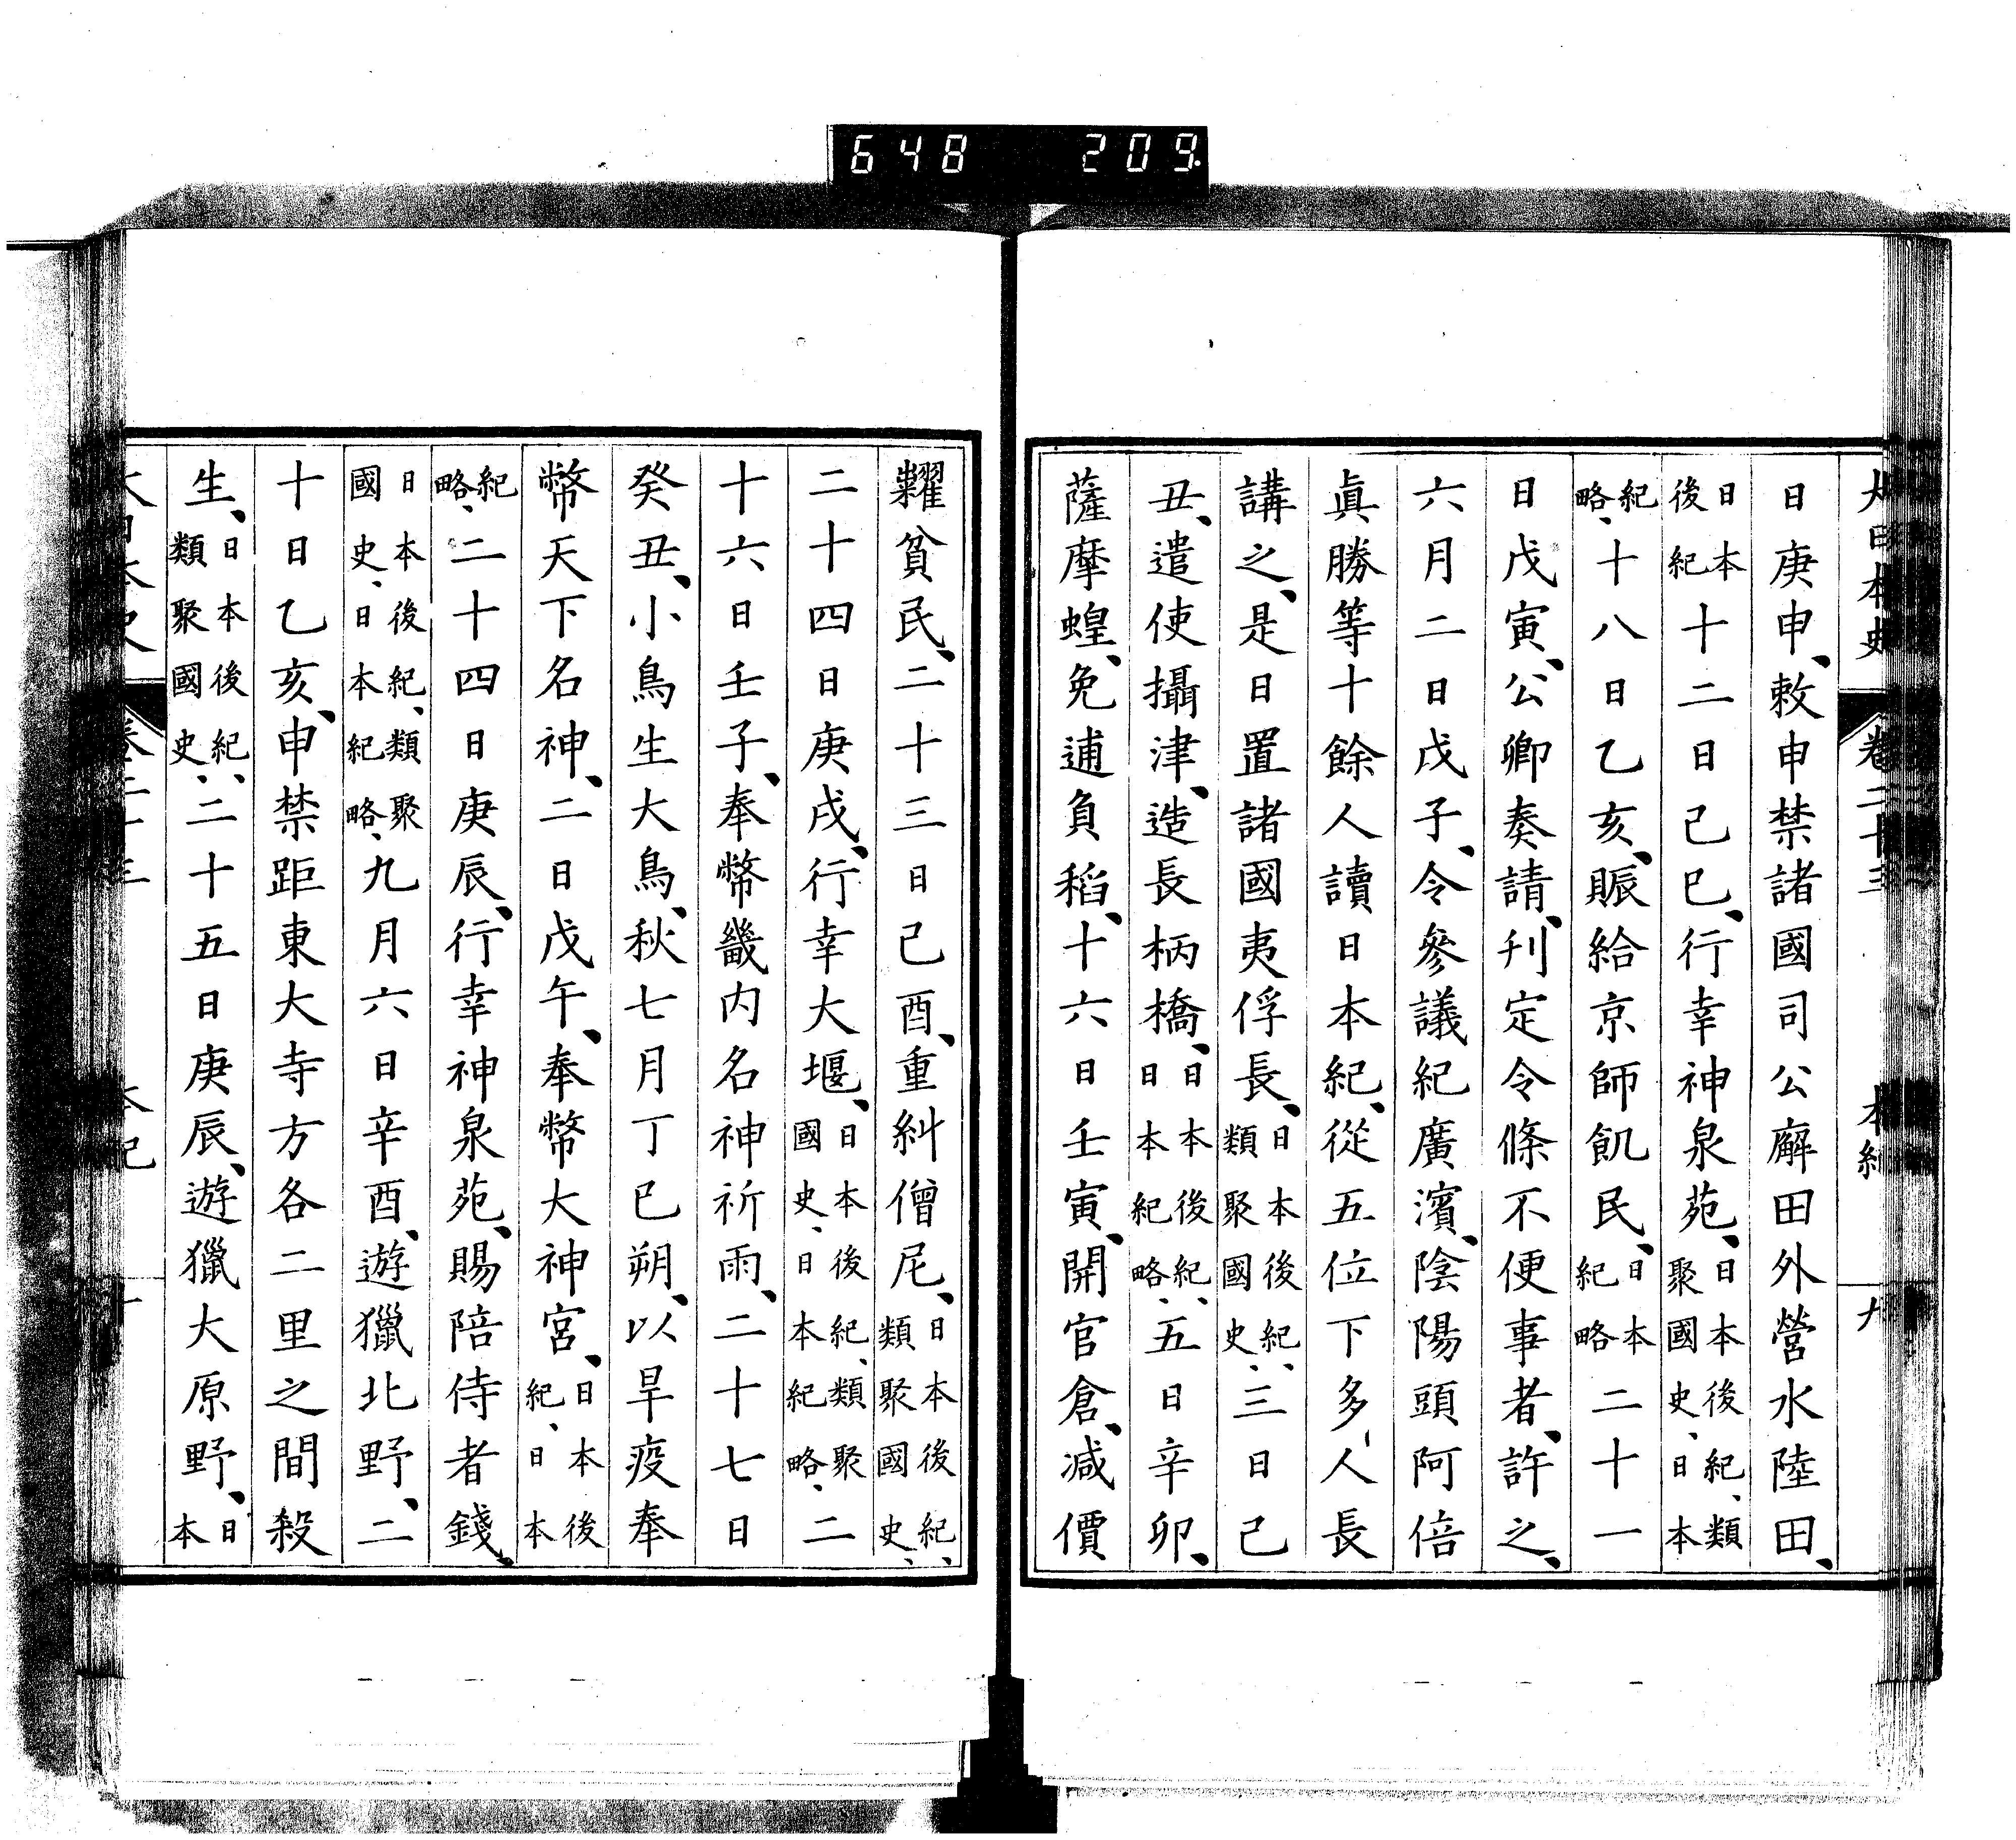 648 209
大日本史 卷二十三 本紀 九
日庚申、敕申禁諸國司公廨田外營水陸田、
日本後紀十二日己巳、行幸神泉苑、日本後紀、類聚國史、日本
紀略、十八日乙亥、賑給京師飢民、日本紀略二十一
日戊寅、公卿奏請、刋定令條不便事者、許之、
六月二日戊子、令參議紀廣濱、陰陽頭阿倍
眞勝等十餘人讀日本紀、從五位下多人長
講之、是日置諸國夷俘長、日本後紀、類聚國史、三日己
丑、遣使攝津、造長柄橋、日本後紀、日本紀略、五日辛卯、
薩摩蝗、免逋負稻、十六日壬寅、開官倉、減價
糶貧民、二十三日己酉、重糾僧尼、日本後紀、類聚國史、
二十四日庚戌、行幸大堰、日本後紀、類聚國史、日本紀略、二
十六日壬子、奉幣畿内名神祈雨、二十七日
癸丑、小鳥生大鳥、秋七月丁巳朔、以旱疫奉
幣天下名神、二日戊午、奉幣大神宮、日本後紀、日本
紀略、二十四日庚辰、行幸神泉苑、賜陪侍者錢、
日本後紀、類聚國史、日本紀略、九月六日辛酉、遊獵北野、二
十日乙亥、申禁距東大寺方各二里之間殺
生、日本後紀、類聚國史、二十五日庚辰、遊獵大原野、日本